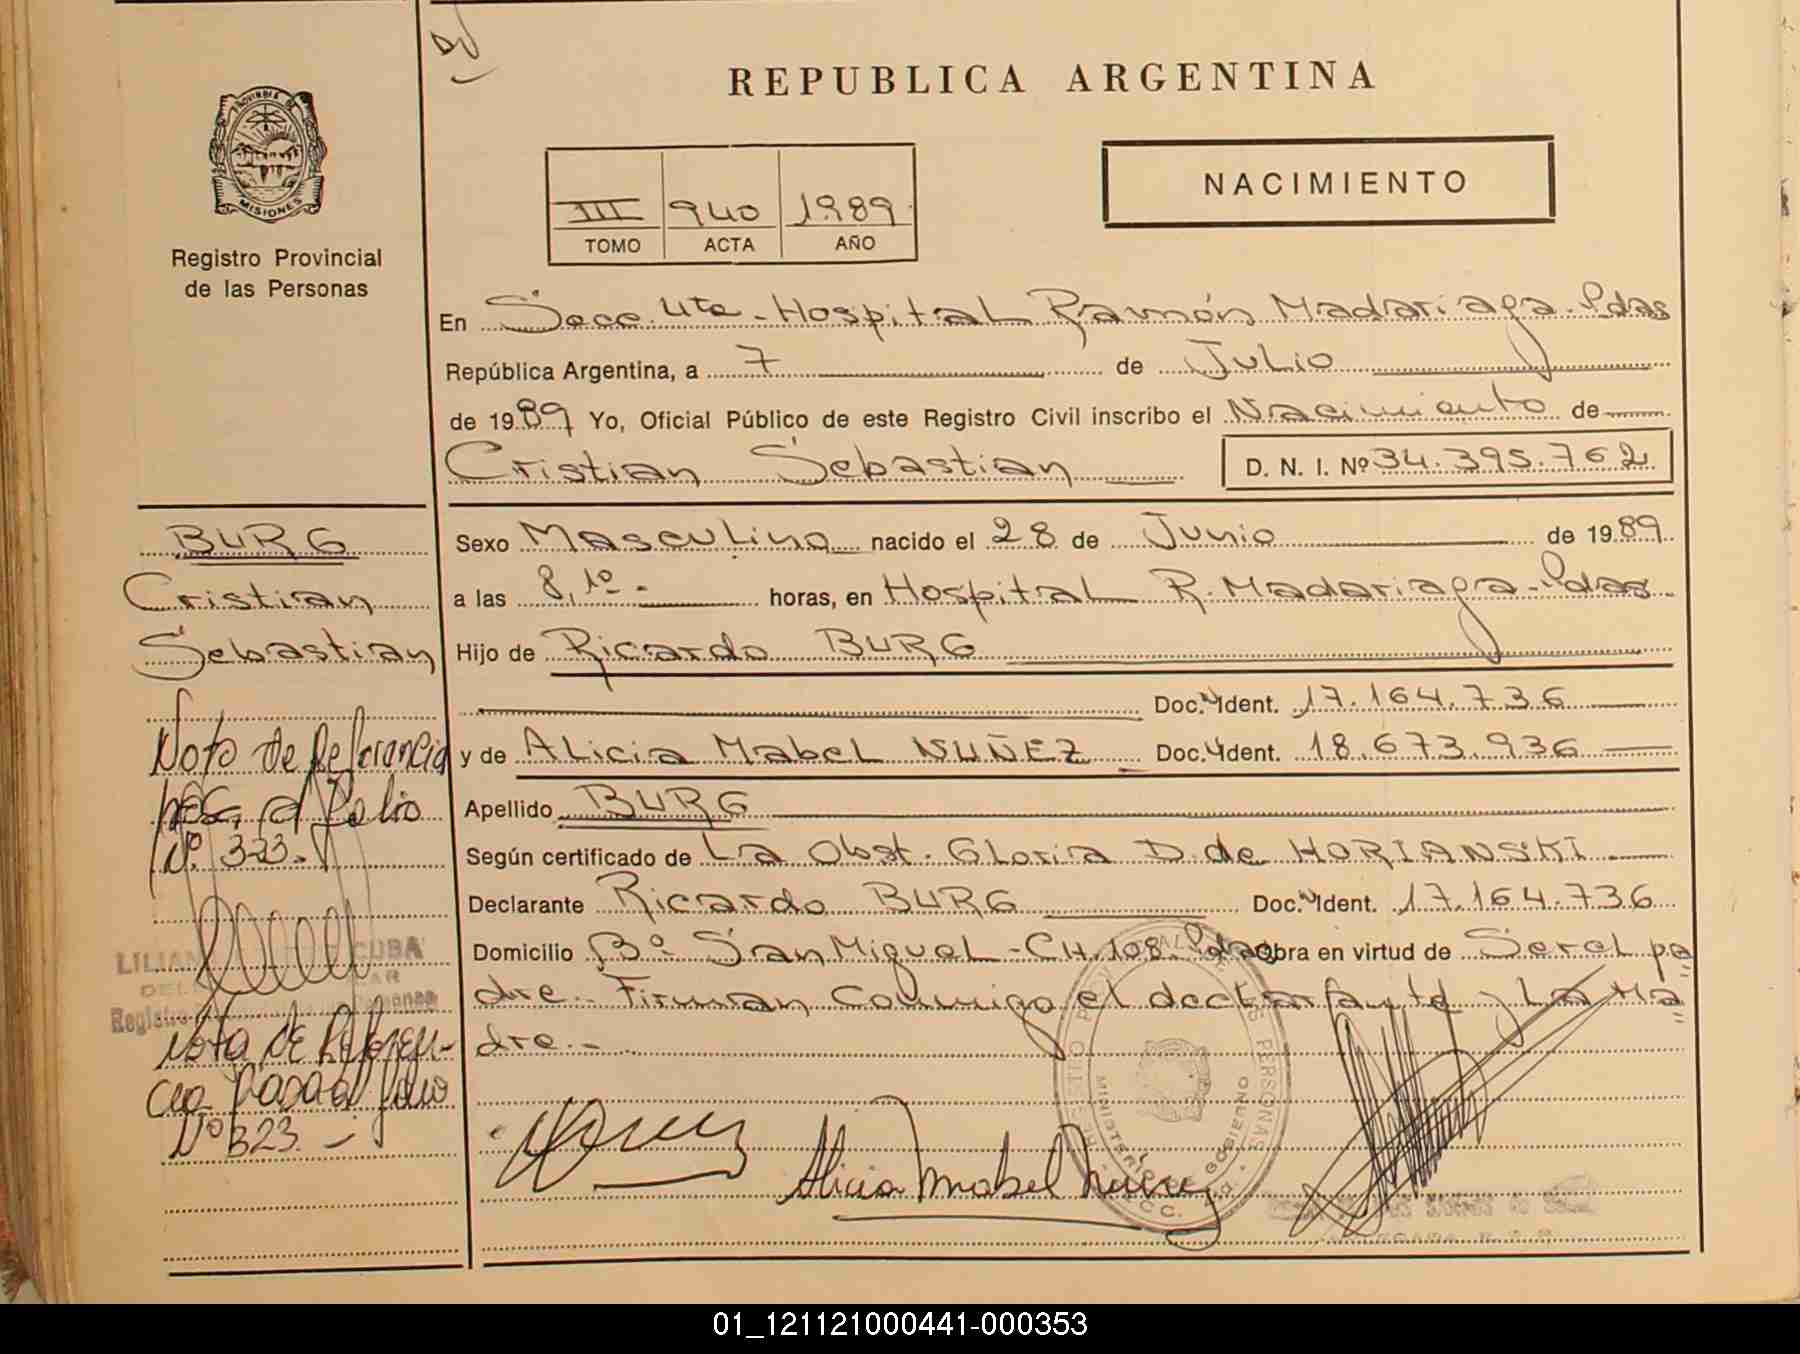 PROVINCIA DE
MISIONES
Registro Provincial
de las Personas
REPUBLICA ARGENTINA
NACIMIENTO
III 940 1989
TOMO ACTA AÑO
En Secc. 4ta - Hospital Ramón Madariaga - Pdas
República Argentina, a 7 de Julio
de 1989 Yo, Oficial Público de este Registro Civil inscribo el Nacimiento de
Cristian Sebastian D. N. I. Nº 34.395.762
Sexo Masculino nacido el 28 de Junio de 1989
a las 8,10 - horas, en Hospital R. Madariaga - Pdas
Hijo de Ricardo BURG
Doc. Ident. 17.164.736
y de Alicia Mabel NUÑEZ Doc. Ident. 18.673.936
Apellido BURG
Según certificado de La Obst. Gloria D. de HORIANSKI
Declarante Ricardo BURG Doc. Ident. 17.164.736
Domicilio Bº San Miguel - CH. 108. Pdas Obra en virtud de Ser el pa"
dre.- Firman conmigo el declarante y La Ma"
dre.-
BURG
Cristian
Sebastian
Nota de Referencia
pasa al Folio
Nº 323.
LILIAN CUBA
Registro Personas
Nota de Referen-
cia Pasa al folio
Nº 323.-
Alicia Mabel Nuñez
MINISTERIO GOBIERNO
PERSONAS
01_121121000441-000353